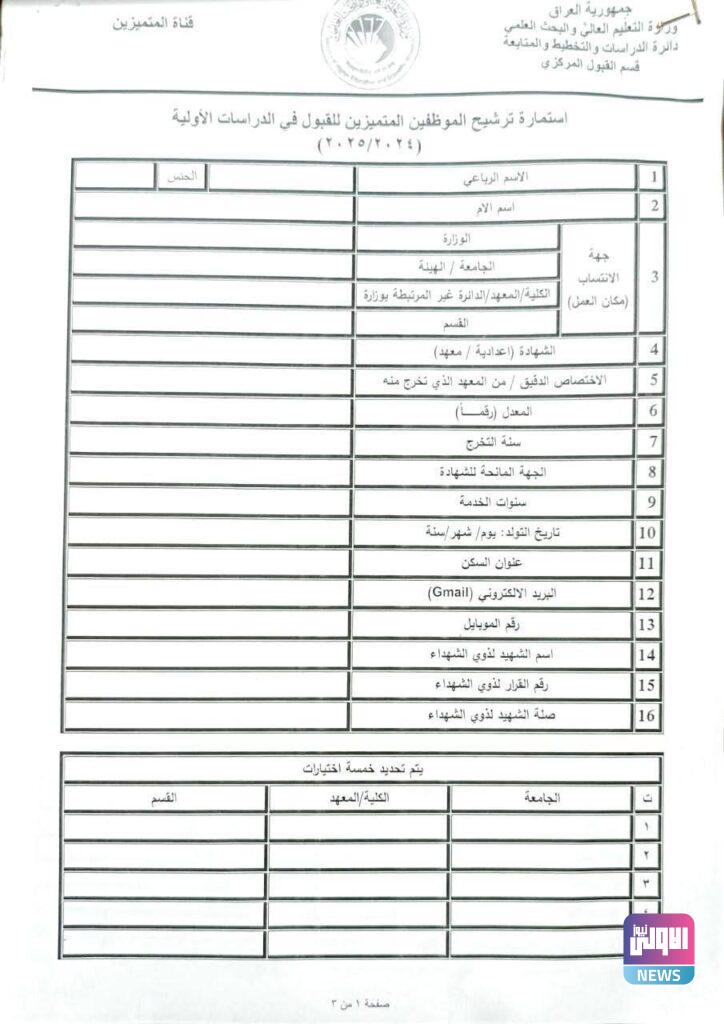 جمهورية العراق
وزارة التعليم العالي والبحث العلمي
دائرة الدراسات والتخطيط والمتابعة
قسم القبول المركزي
قناة المتميزين
استمارة ترشيح الموظفين المتميزين للقبول في الدراسات الأولية
(٢٠٢٥/٢٠٢٤)
1 الاسم الرباعي الجنس
2 اسم الام
3 جهة الانتساب (مكان العمل)
الوزارة
الجامعة / الهيئة
الكلية/المعهد/الدائرة غير المرتبطة بوزارة
القسم
4 الشهادة (اعدادية / معهد)
5 الاختصاص الدقيق / من المعهد الذي تخرج منه
6 المعدل (رقمــــاً)
7 سنة التخرج
8 الجهة المانحة للشهادة
9 سنوات الخدمة
10 تاريخ التولد: يوم/ شهر/سنة
11 عنوان السكن
12 البريد الالكتروني (Gmail)
13 رقم الموبايل
14 اسم الشهيد لذوي الشهداء
15 رقم القرار لذوي الشهداء
16 صلة الشهيد لذوي الشهداء
يتم تحديد خمسة اختيارات
ت الجامعة الكلية/المعهد القسم
١
٢
٣
٤
الاولى نيوز
NEWS
صفحة ١ من ٣